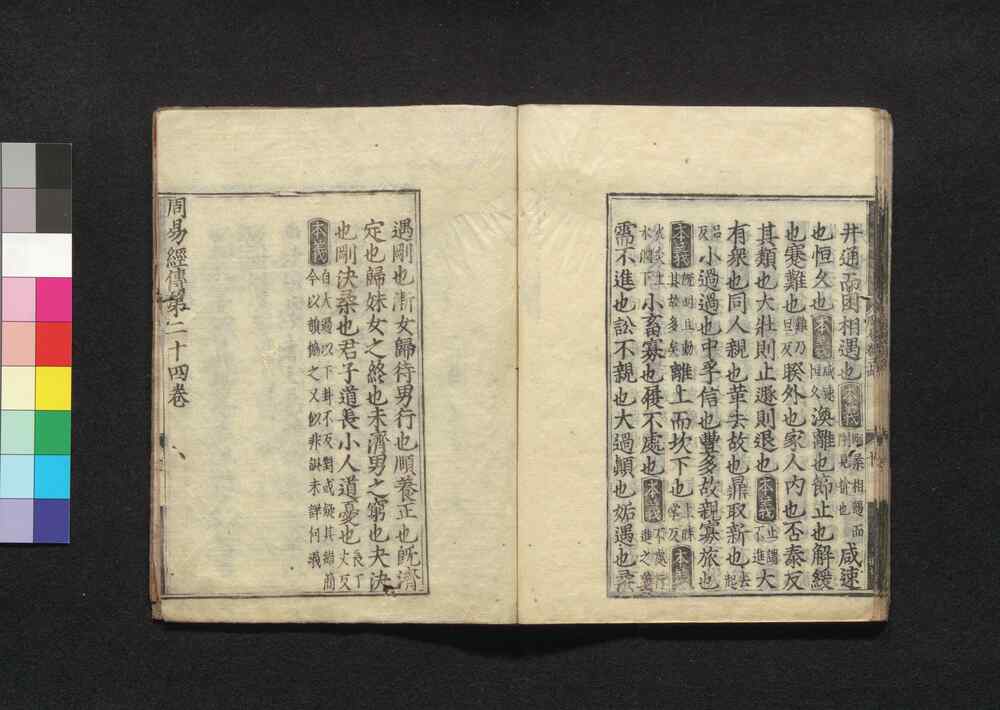 井通而困相遇也本義剛柔相遇而剛見揜也咸速
也恒久也本義咸速恒久渙離也節止也解緩
也蹇難也難乃旦反睽外也家人内也否泰反
其類也大壯則止遯則退也本義止謂不進大
有衆也同人親也革去故也鼎取新也去起
呂反小過過也中孚信也豐多故親寡旅也
本義既明且動其故多矣離上而坎下也上時掌反本義
火炎上水潤下小畜寡也履不處也本義不處行進之義
需不進也訟不親也大過顚也姤遇也柔
遇剛也漸女歸待男行也順養正也旣濟
定也歸妹女之終也未濟男之窮也夬決
也剛決柔也君子道長小人道憂也長丁丈反
本義自大過以下卦不反對或疑其錯簡今以韻協之又似非誤未詳何義
周易經傳第二十四卷